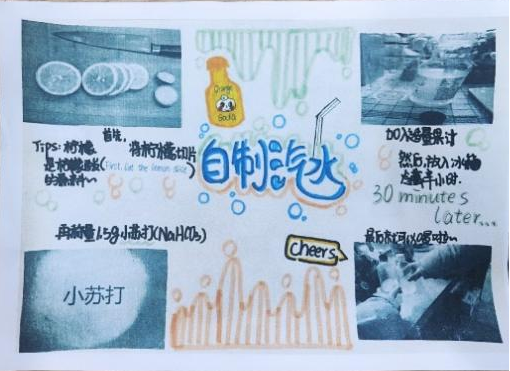 首先,
将柠檬切片
Tips: 柠檬
是柠檬酸
(First, Cut the lemon slice)
Orange
Soda
自制汽水
加入适量果汁
然后,放入冰箱
半小时.
30 minutes
later...
再称量1.5g小苏打(NaHCO₃)
小苏打
cheers
最后就可以喝啦~